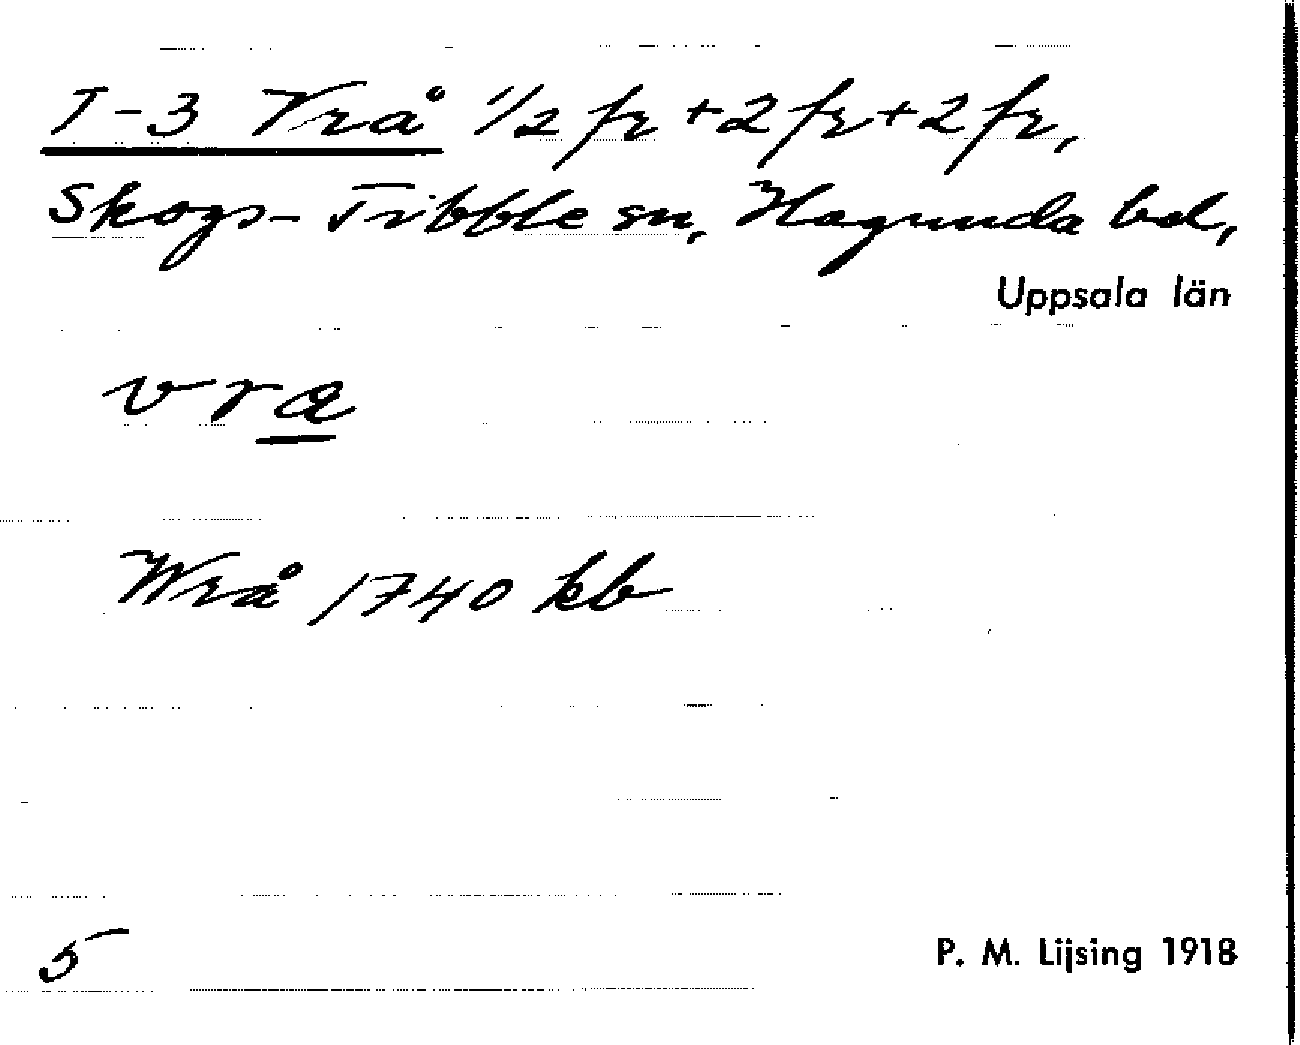 1-3 Vrå 1/2 fr + 2 fr + 2 fr,
Skogs-Tibble sn, Hagunda hd,
Uppsala län
vra
Wrå 1740 kb
5
P. M. Lijsing 1918